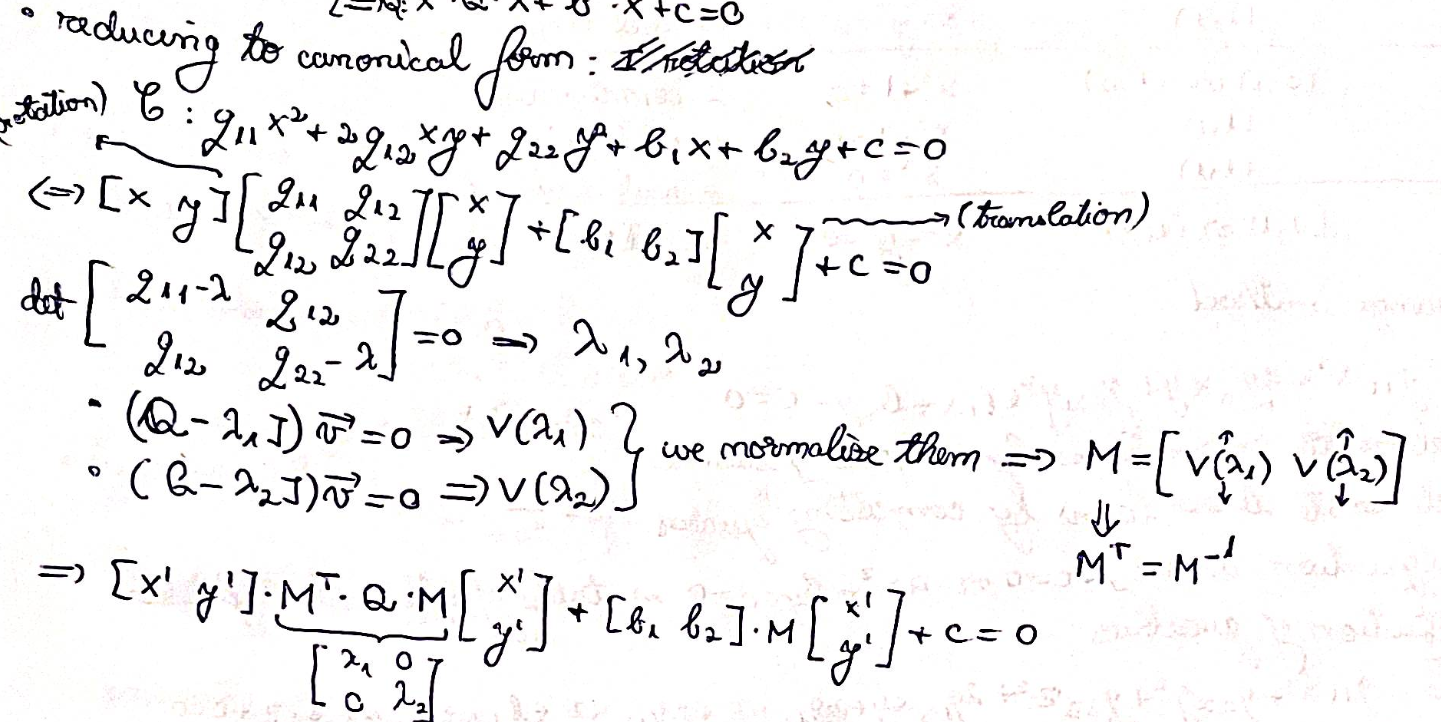 [=X^T·Q·X+b·X+C=0
• reducing to canonical form:
(rotation) C: q₁₁x²+2q₁₂xy+q₂₂y²+b₁x+b₂y+c=0
<=> [x y][q₁₁ q₁₂; q₁₂ q₂₂][x; y]+[b₁ b₂][x; y]+c=0 → (translation)
det[q₁₁-λ q₁₂; q₁₂ q₂₂-λ]=0 => λ₁, λ₂
• (Q-λ₁I)v⃗=0 => V(λ₁)
• (Q-λ₂I)v⃗=0 => V(λ₂) } we normalize them => M=[V(λ₁) V(λ₂)]
⇓
Mᵀ=M⁻¹
=> [x' y']·Mᵀ·Q·M[x'; y']+[b₁ b₂]·M[x'; y']+c=0
[λ₁ 0; 0 λ₂]